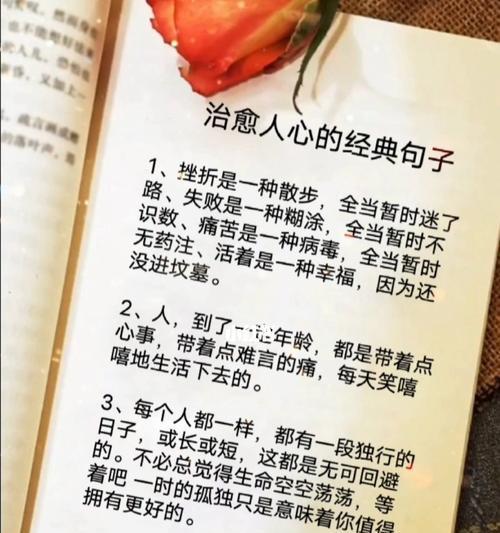 治愈人心的经典句子
1、挫折是一种散步，全当暂时迷了
路、失败是一种糊涂，全当暂时不
识数、痛苦是一种病毒，全当暂时
无药注、活着是一种幸福，因为还
没进坟墓。
2、人，到了一 年龄，都是带着点
心事，带着点难言的痛，每天笑嘻
嘻地生活下去的。
3、每个人都一样，都有一段独行的
日子，或长或短，这都是无可回避
的。不必总觉得生命空空荡荡，等
着吧 一时的孤独只是意味着你值得
拥有更好的。